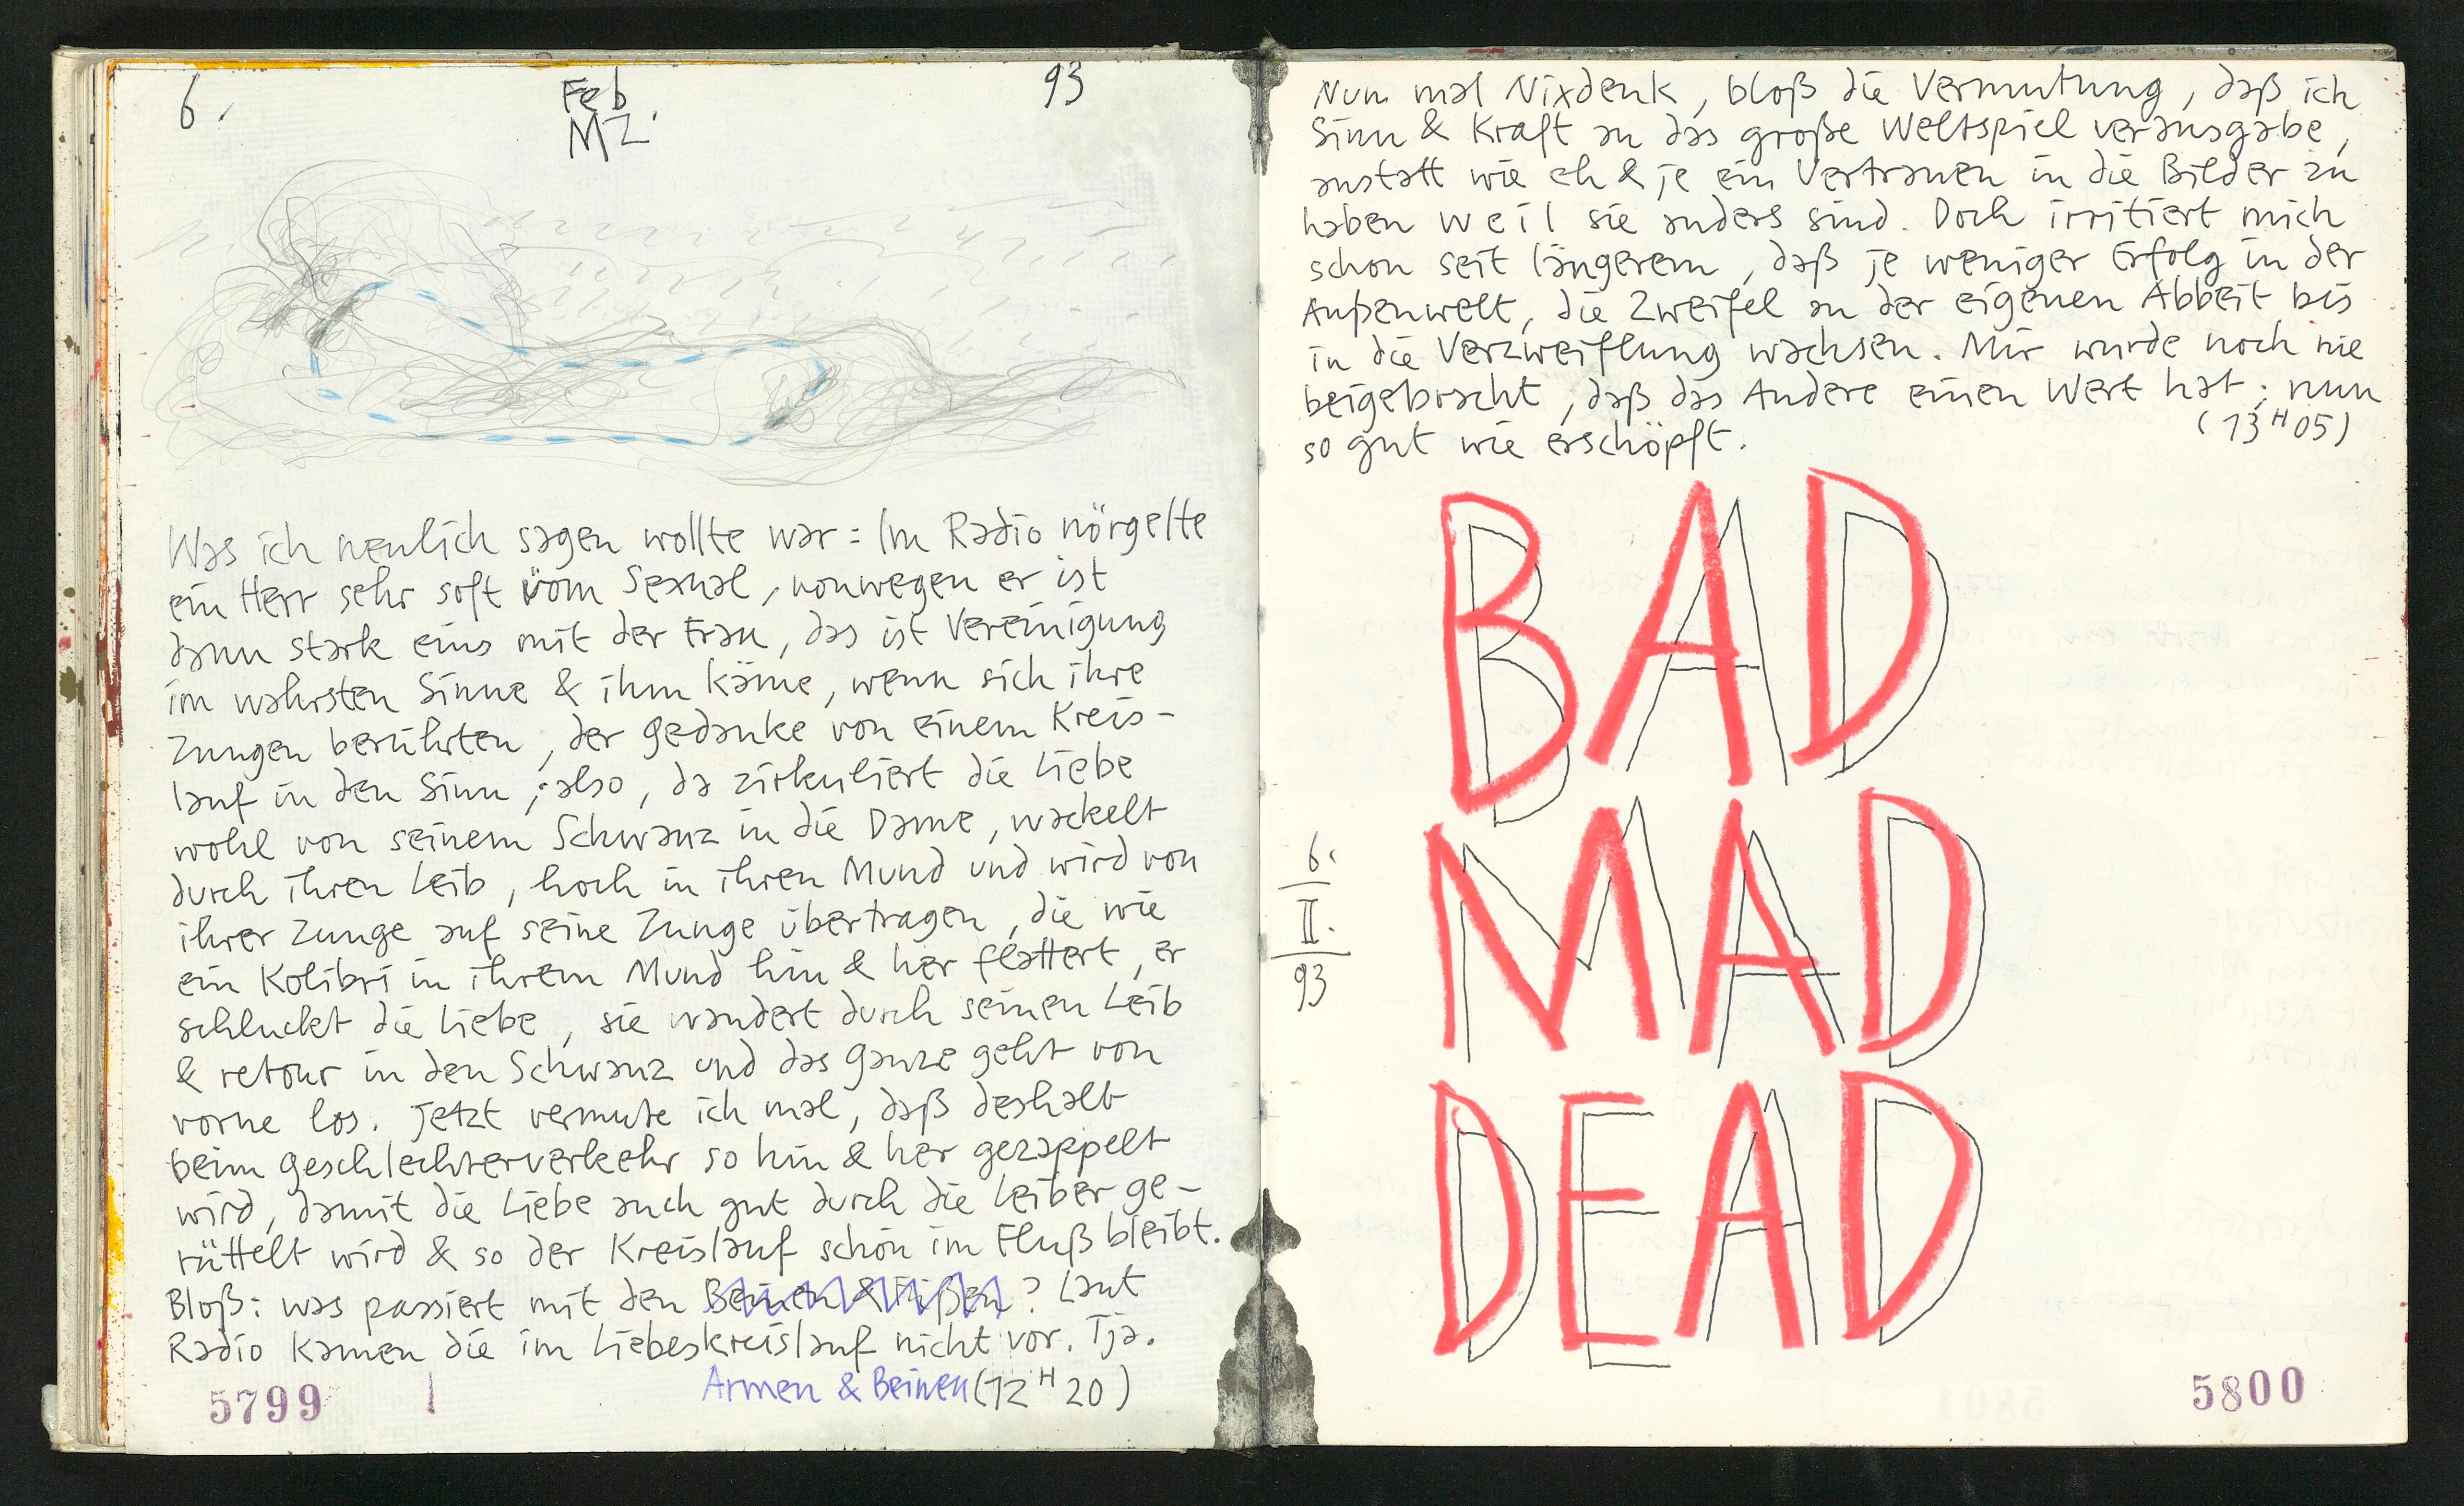 6. Feb. 93
MZ.
Was ich neulich sagen wollte war: Im Radio nörgelte
ein Herr sehr soft vom Sexual, vonwegen er ist
dann stark eins mit der Frau, das ist Vereinigung
im wahrsten Sinne & ihm käme, wenn sich ihre
Zungen berührten, der Gedanke von einem Kreis-
lauf in den Sinn; also, da zirkuliert die Liebe
wohl von seinem Schwanz in die Dame, wackelt
durch ihren Leib, hoch in ihren Mund und wird von
ihrer Zunge auf seine Zunge übertragen, die wie
ein Kolibri in ihrem Mund hin & her flattert, er
schluckt die Liebe, sie wandert durch seinen Leib
& retour in den Schwanz und das Ganze geht von
vorne los. Jetzt vermute ich mal, daß deshalb
beim Geschlechterverkehr so hin & her gezappelt
wird, damit die Liebe auch gut durch die Leiber ge-
rüttelt wird & so der Kreislauf schön im Fluß bleibt.
Bloß: was passiert mit den Beinen & Füßen? Laut
Radio kamen die im Liebeskreislauf nicht vor. Tja.
Armen & Beinen (12 H 20)
5799
Nun mal Nixdenk, bloß die Vermutung, daß ich
Sinn & Kraft an das große Weltspiel verausgabe,
anstatt wie eh & je ein Vertrauen in die Bilder zu
haben weil sie anders sind. Doch irritiert mich
schon seit längerem, daß je weniger Erfolg in der
Außenwelt, die Zweifel an der eigenen Abbeit bis
in die Verzweiflung wachsen. Mir wurde noch nie
beigebracht, daß das Andere einen Wert hat; nun
so gut wie erschöpft. (13 H 05)
BAD
MAD
DEAD
6.
II.
93
5800